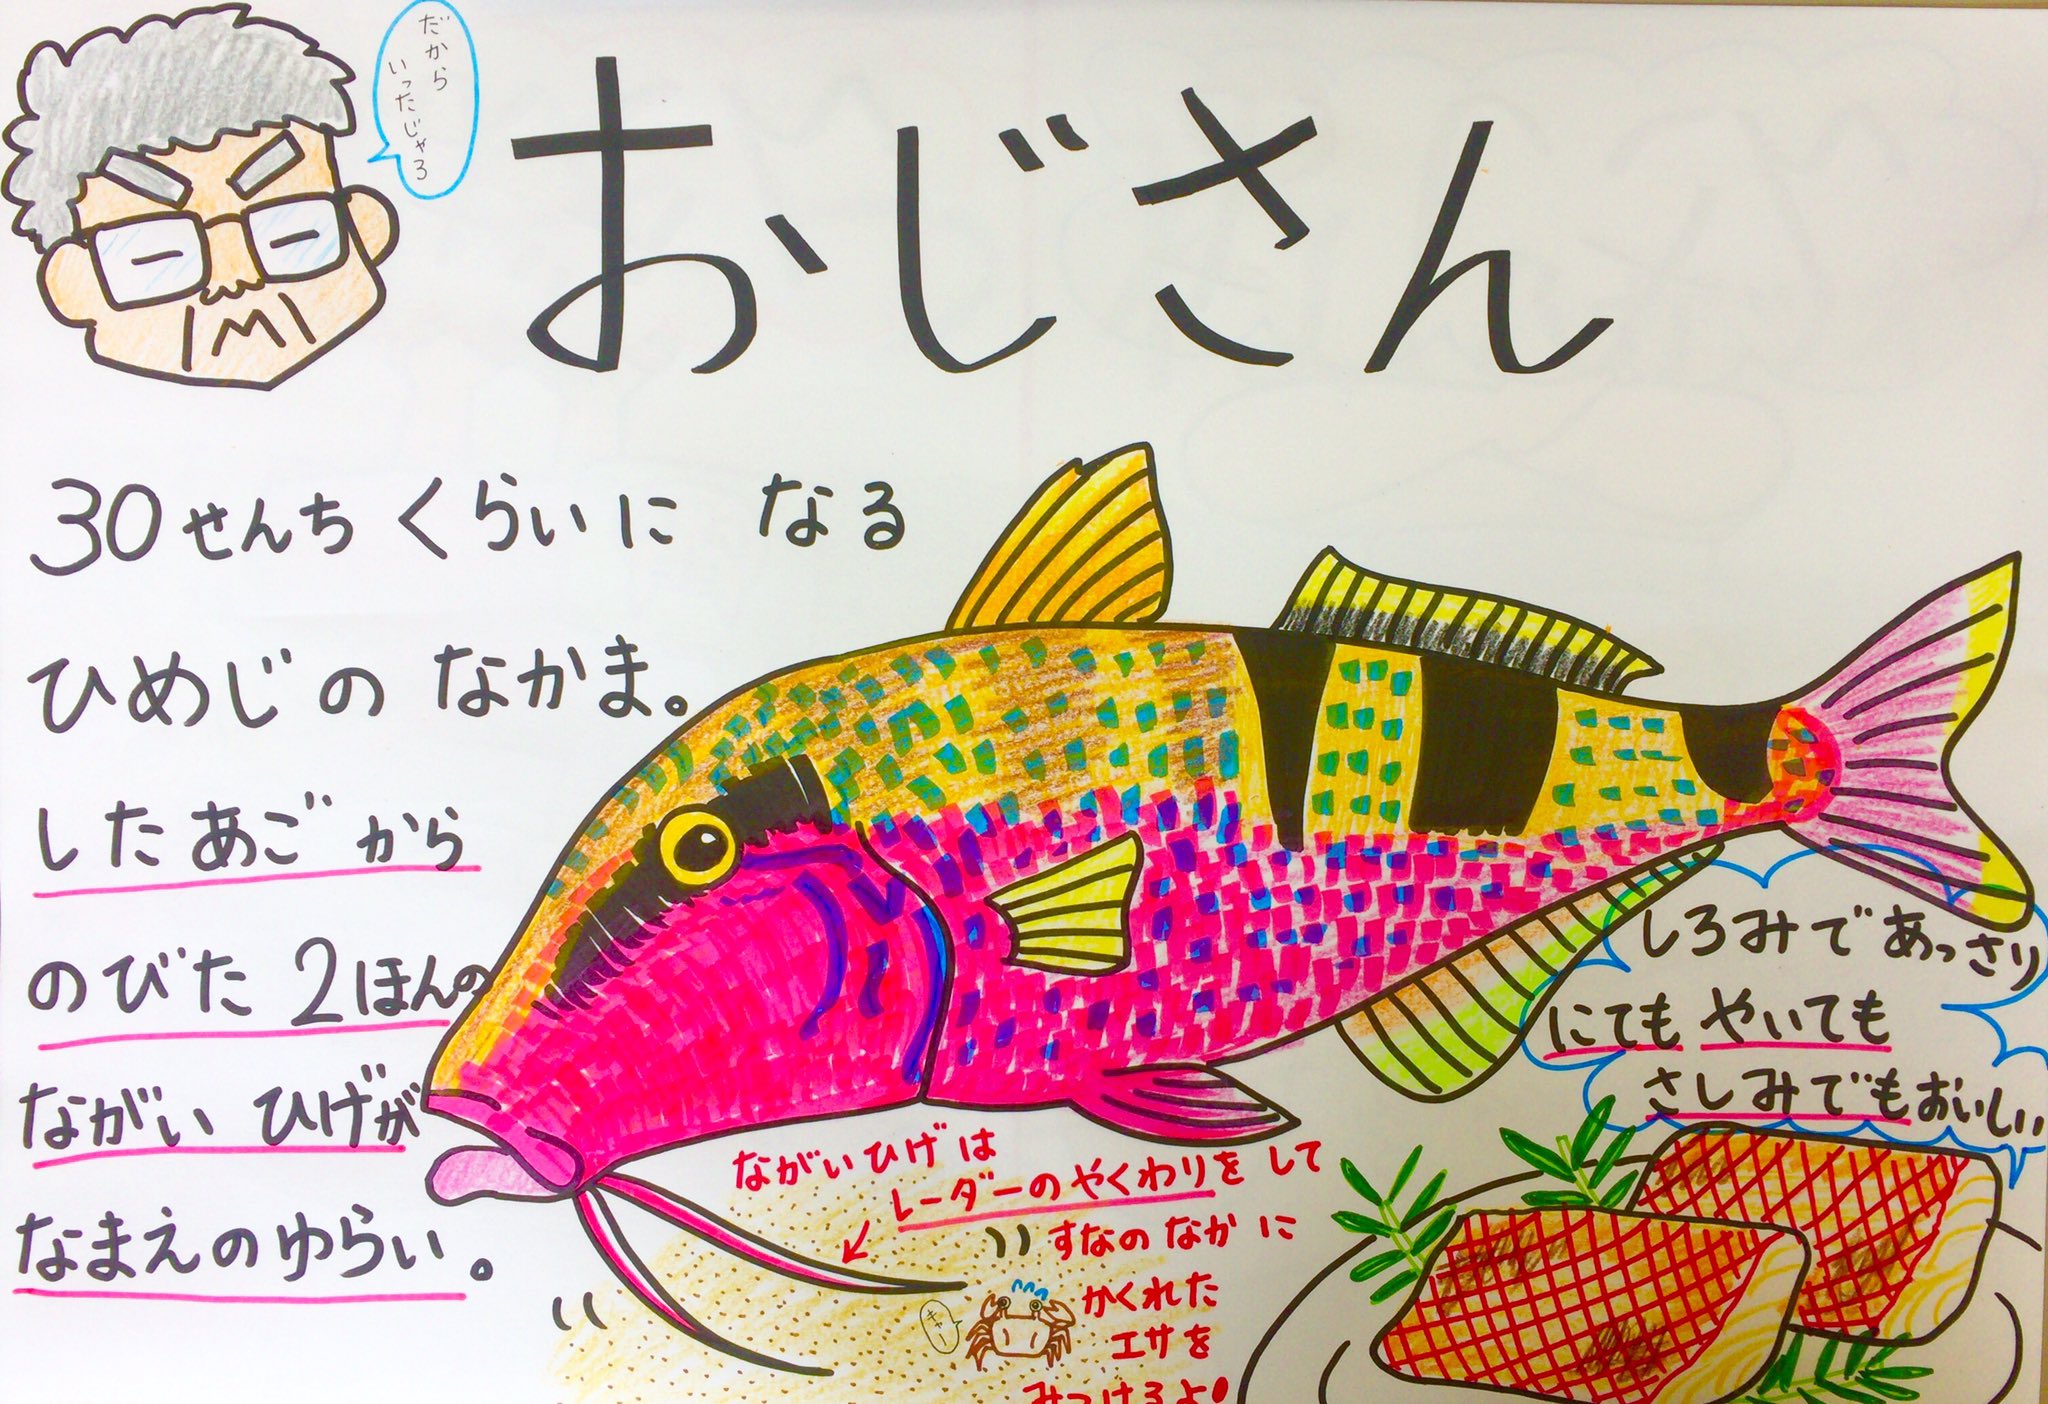 だから
いったじゃろ
おじさん
30せんちくらいに なる
ひめじの なかま。
したあごから
のびた 2ほんの
ながい ひげが
なまえのゆらい。
ながいひげは
レーダーのやくわりをして
すなの なかに
かくれた
エサを
みつけるよ!
キャー
しろみで あっさり
にても やいても
さしみでもおいしい